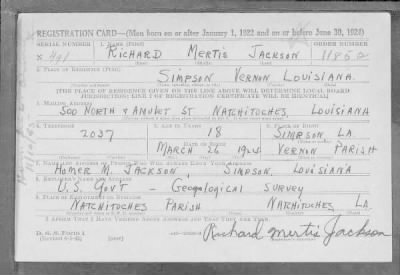 REGISTRATION CARD—(Men born on or after January 1, 1922 and on or before June 30, 1924)
SERIAL NUMBER 1. NAME (Print) ORDER NUMBER
RICHARD MERTIS JACKSON 11850
2. PLACE OF RESIDENCE (Print)
SIMPSON VERNON LOUISIANA
[THE PLACE OF RESIDENCE GIVEN ON THE LINE ABOVE WILL DETERMINE LOCAL BOARD
JURISDICTION; LINE 2 OF REGISTRATION CERTIFICATE WILL BE IDENTICAL]
3. MAILING ADDRESS
500 NORTH & ST NATCHITOCHES, LOUISIANA
4. TELEPHONE 5. AGE IN YEARS 6. PLACE OF BIRTH
2037 18 SIMPSON LA
DATE OF BIRTH
MARCH 26 1924 VERNON PARISH
7. NAME AND ADDRESS OF PERSON WHO WILL ALWAYS KNOW YOUR ADDRESS
HOMER M. JACKSON, SIMPSON, LOUISIANA
8. EMPLOYER'S NAME AND ADDRESS
U.S. GOV'T — GEOLOGICAL SURVEY
9. PLACE OF EMPLOYMENT OR BUSINESS
NATCHITOCHES PARISH NATCHITOCHES LA.
I AFFIRM THAT I HAVE VERIFIED ABOVE ANSWERS AND THAT THEY ARE TRUE.
D. S. S. Form 1
Richard Mertis Jackson